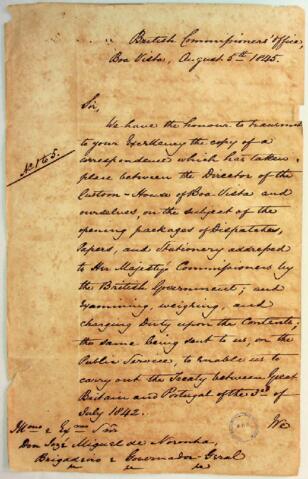 British Commissioners' Office,
Boa Vista, August 5th 1845.
Sir,
We have the honour to transmit
to your Excellency the copy of a
correspondence which has taken
place between the Director of the
Custom-House of Boa Vista and
ourselves, on the subject of the
opening packages of Despatches,
Papers, and Stationery addressed
to Her Majesty's Commissioners by
the British Government; and
Examining, weighing, and
charging Duty upon the Contents,
the same being sent to us, on the
Public Service, to Enable us to
carry out the Treaty between Great
Britain and Portugal of the 3rd of
July 1842.
We
No 165.
Illmo e Exmo Snr
Don José Miguel de Noronha,
Brigadeiro e Governador Geral